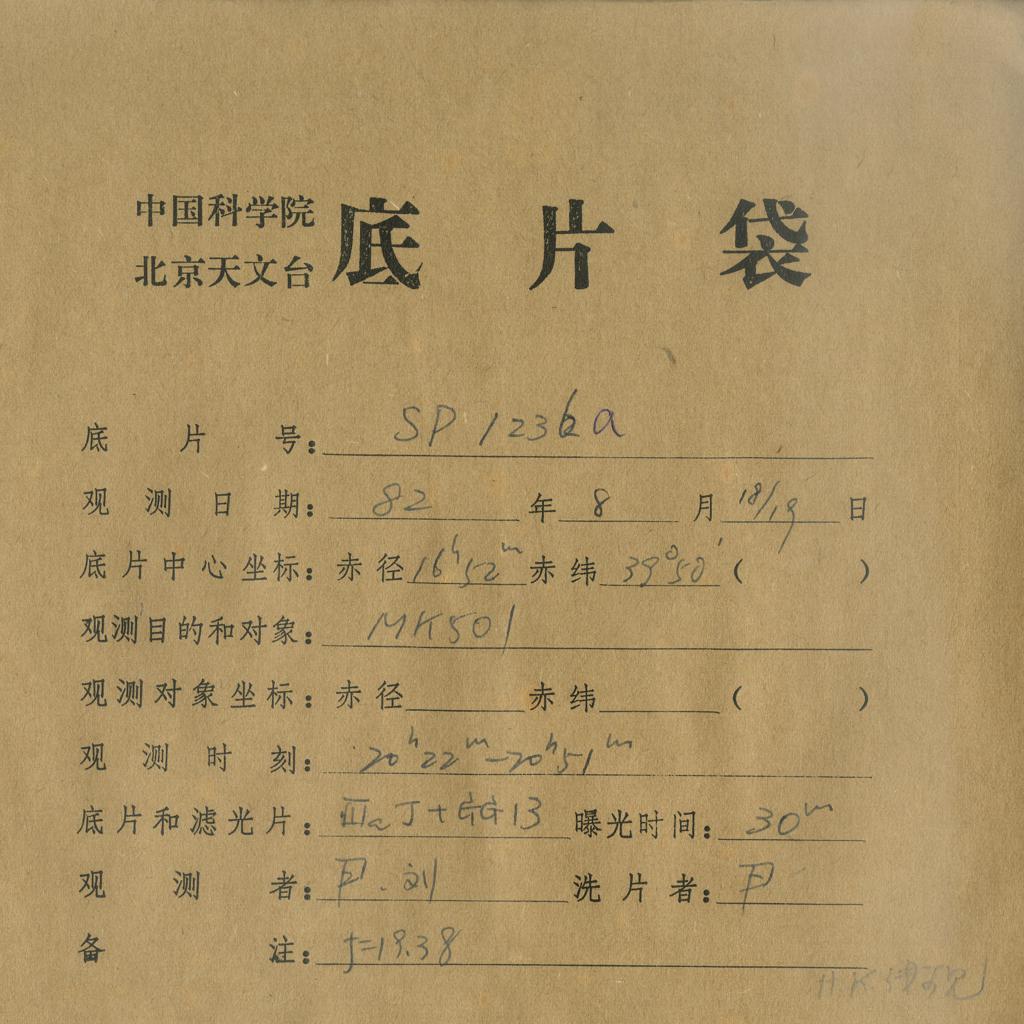 中国科学院
北京天文台 底片袋
底片号：SP 1236a
观测日期：82年8月18/19日
底片中心坐标：赤径16h52m赤纬39°50′（ ）
观测目的和对象：MK501
观测对象坐标：赤径 赤纬 （ ）
观测时刻：20h22m—20h51m
底片和滤光片：IIaJ+GG13 曝光时间：30m
观测者：尹.刘 洗片者：尹
备注：f=19.38
H.K